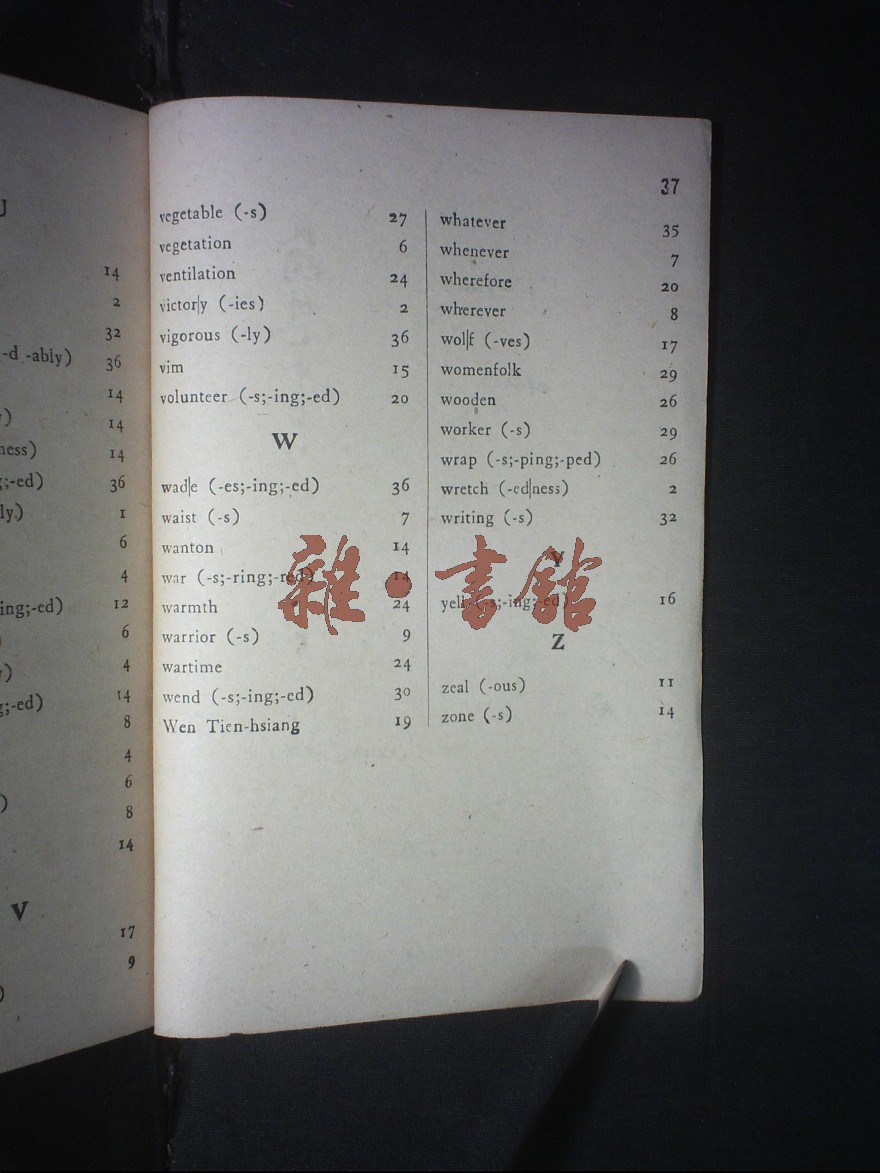 U
14
2
32
-d -ably) 36
14
) 14
ness) 14
;-ed) 36
ly) 1
6
4
ing;-ed) 12
6
) 4
;-ed) 14
8
4
6
) 8
14
V
17
9
)
37
vegetable (-s) 27
vegetation 6
ventilation 24
victor|y (-ies) 2
vigorous (-ly) 36
vim 15
volunteer (-s;-ing;-ed) 20
W
wad|e (-es;-ing;-ed) 36
waist (-s) 7
wanton 14
war (-s;-ring;-red) 14
warmth 24
warrior (-s) 9
wartime 24
wend (-s;-ing;-ed) 30
Wen Tien-hsiang 19
whatever 35
whenever 7
wherefore 20
wherever 8
wol|f (-ves) 17
womenfolk 29
wooden 26
worker (-s) 29
wrap (-s;-ping;-ped) 26
wretch (-ed|ness) 2
writing (-s) 32
Y
yell (-s;-ing;-ed) 16
Z
zeal (-ous) 11
zone (-s) 14
雜·書館